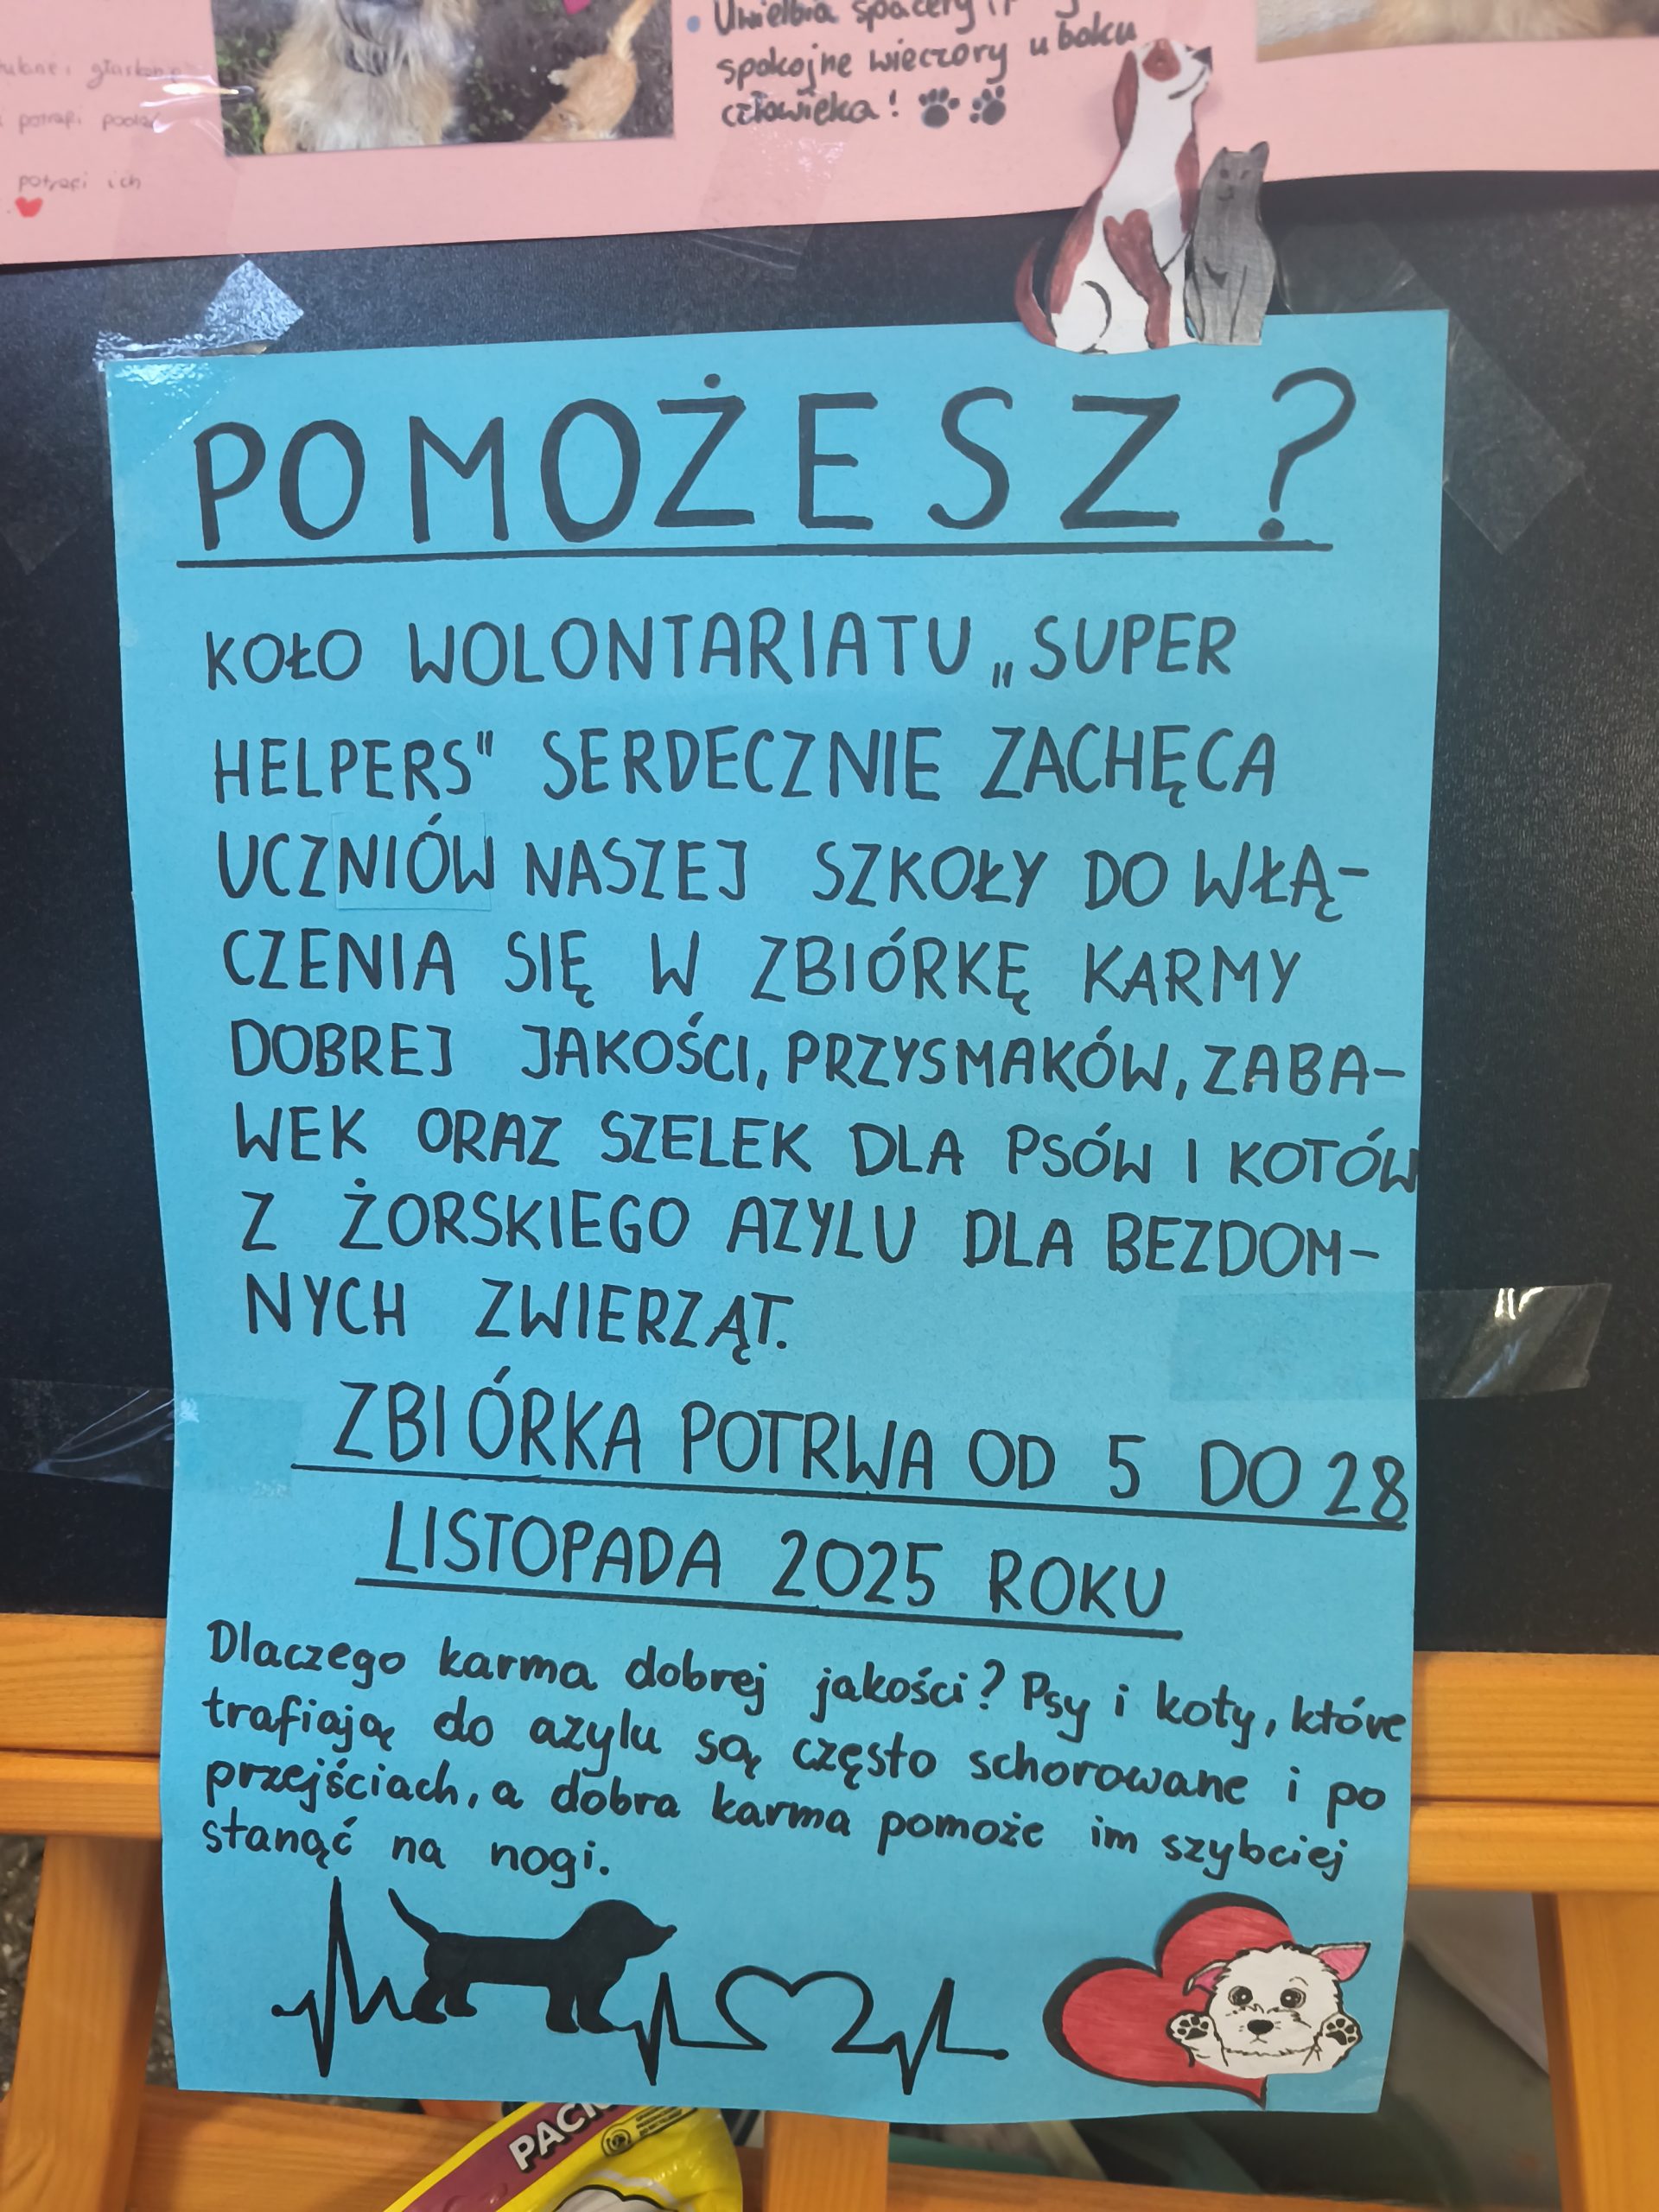 głaskanie
potrafi
potrafi ich
Uwielbia spacery i
spokojne wieczory u boku
człowieka!
POMOŻESZ?
KOŁO WOLONTARIATU „SUPER
HELPERS" SERDECZNIE ZACHĘCA
UCZNIÓW NASZEJ SZKOŁY DO WŁĄ-
CZENIA SIĘ W ZBIÓRKĘ KARMY
DOBREJ JAKOŚCI, PRZYSMAKÓW, ZABA-
WEK ORAZ SZELEK DLA PSÓW I KOTÓW
Z ŻORSKIEGO AZYLU DLA BEZDOM-
NYCH ZWIERZĄT.
ZBIÓRKA POTRWA OD 5 DO 28
LISTOPADA 2025 ROKU
Dlaczego karma dobrej jakości? Psy i koty, które
trafiają do azylu są często schorowane i po
przejściach, a dobra karma pomoże im szybciej
stanąć na nogi.